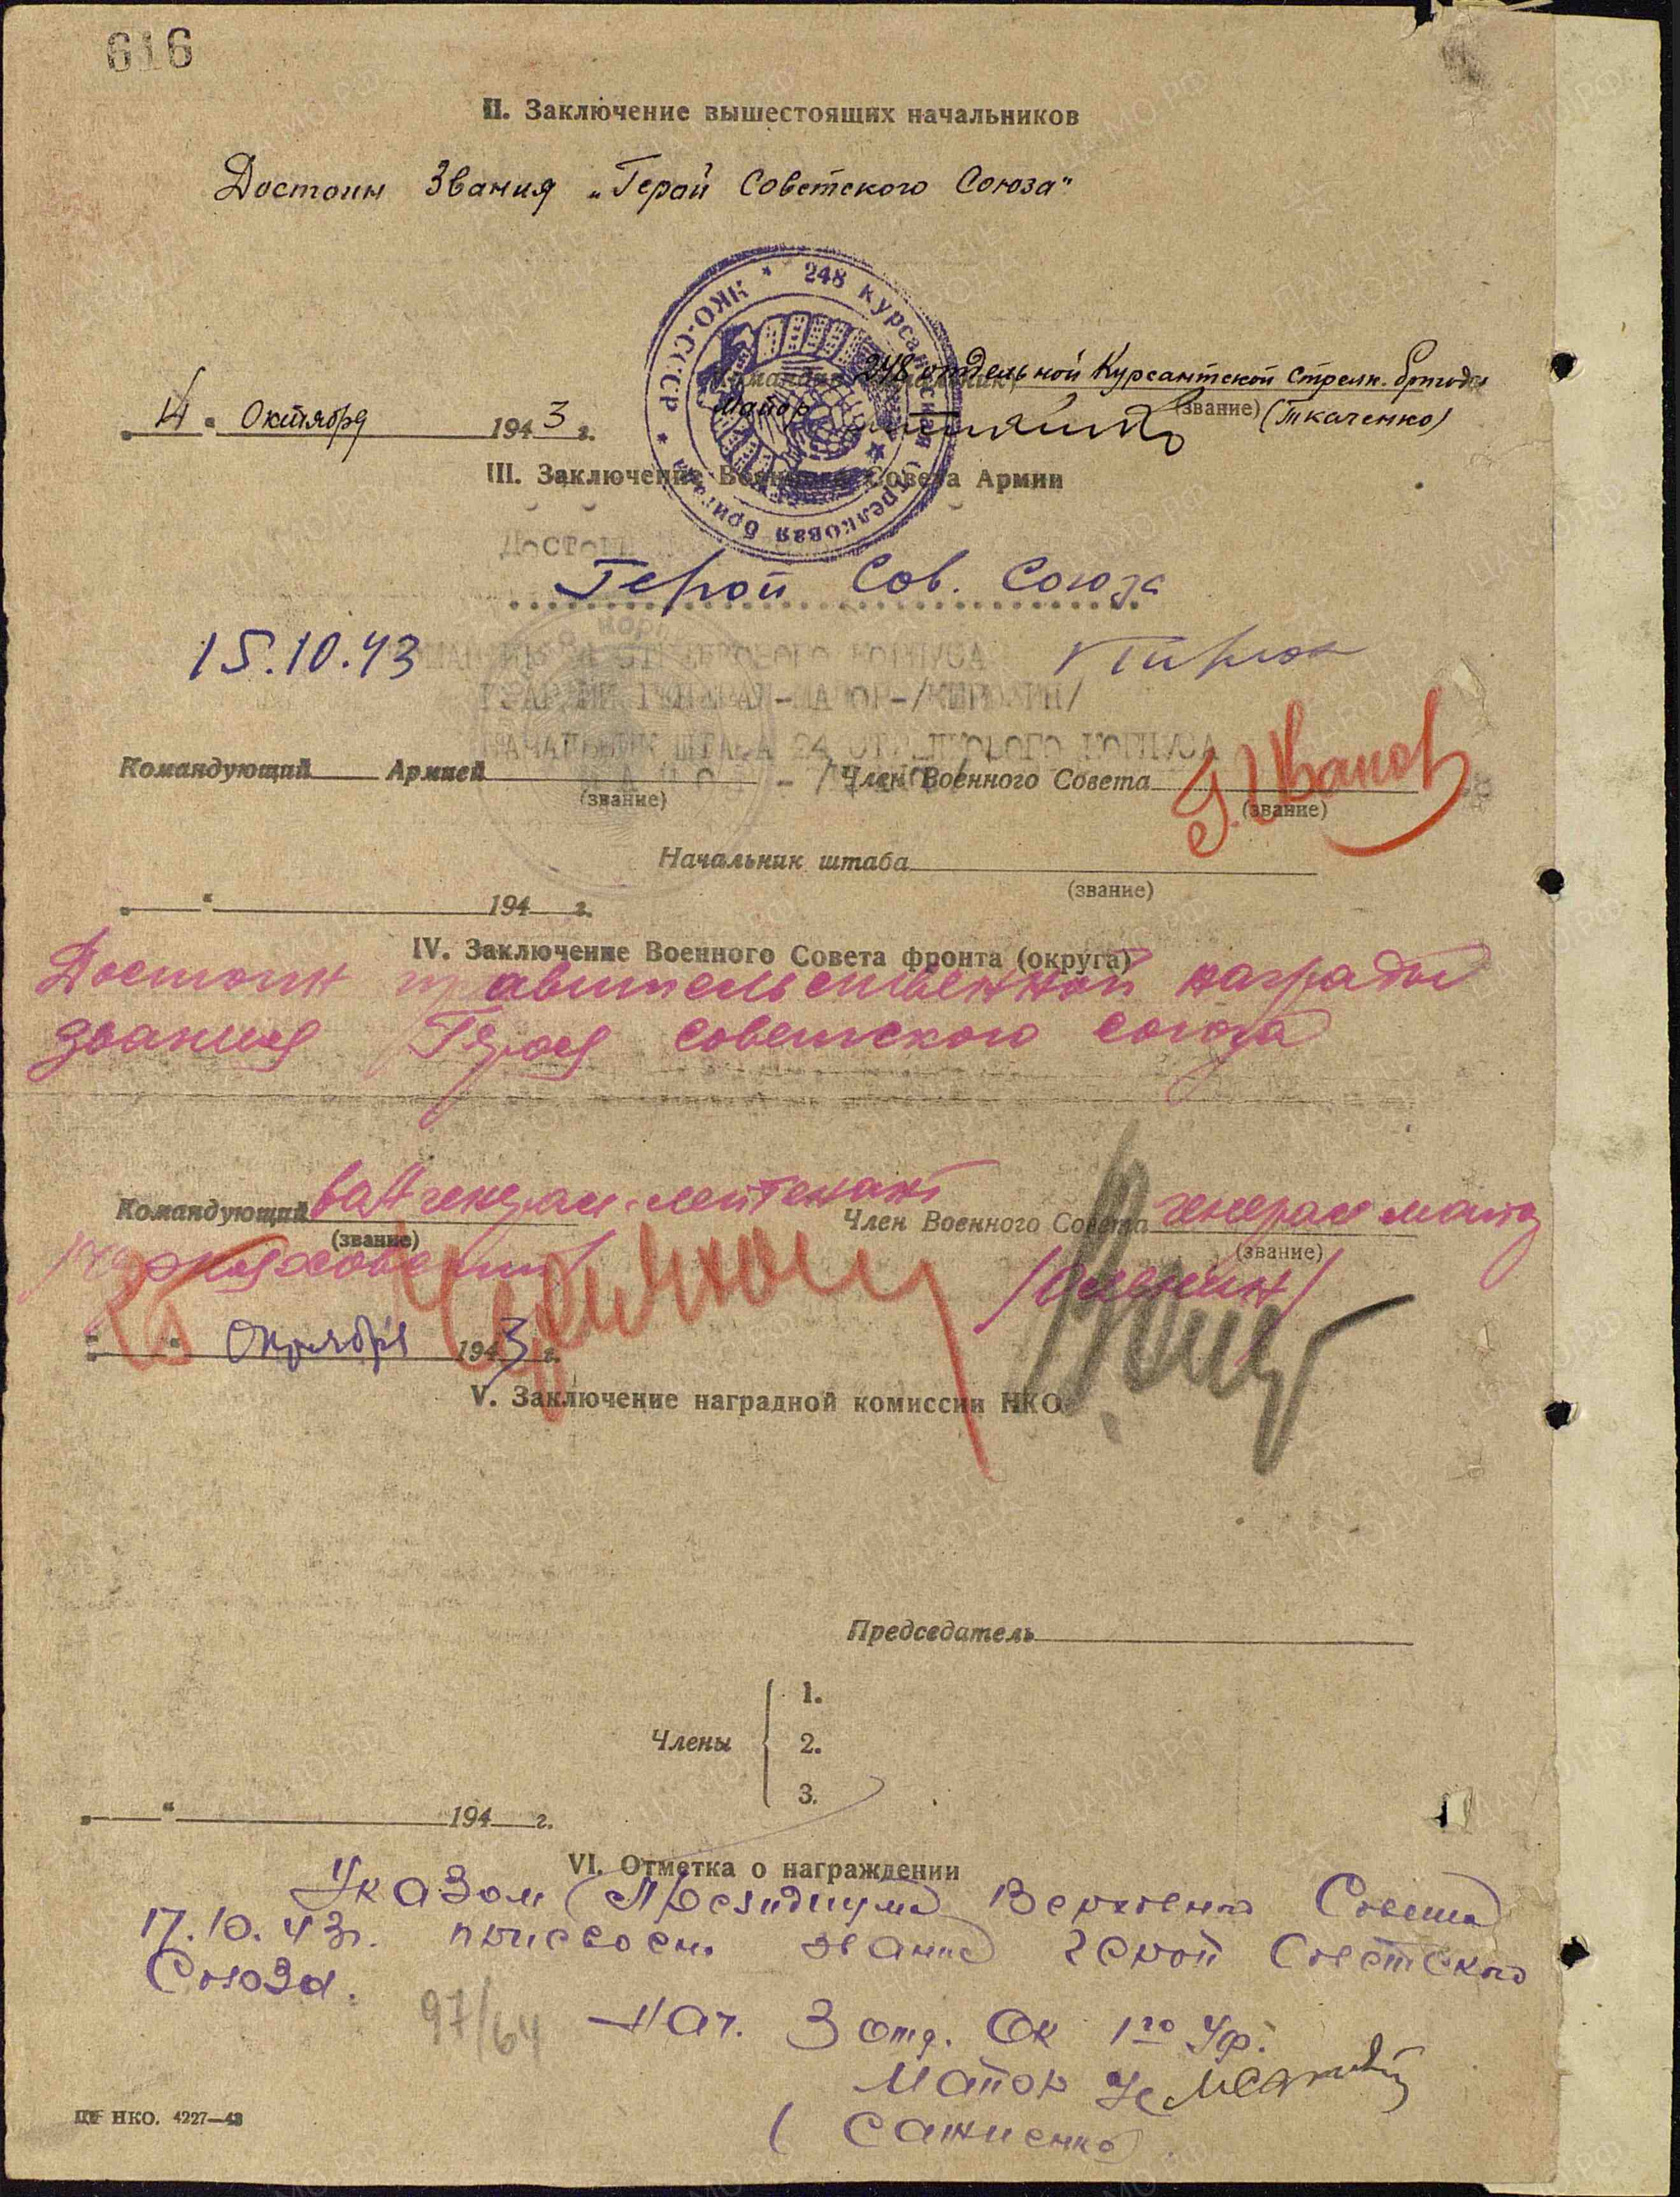 616
II. Заключение вышестоящих начальников
Достоин Звания „Герой Советского Союза"
* 248 Курсантская стрелковая бригада * НКО-СССР
248 отдельной Курсантской Стрелк. бригады
Майор (звание) (Ткаченко)
„ 4 " Октября 1943 г.
III. Заключение Военного Совета Армии
Достоин
Герой Сов. Союза
15.10.43
СТРЕЛКОВОГО КОРПУСА
ГВАРДИИ ГЕНЕРАЛ-МАЙОР-/КИРЮХИН/
НАЧАЛЬНИК ШТАБА 24 СТРЕЛКОВОГО КОРПУСА
Командующий Армией Член Военного Совета
(звание) (звание)
Начальник штаба
(звание)
„ " 194 г.
IV. Заключение Военного Совета фронта (округа)
Достоин правительственной награды
звания Героя советского союза
Командующий генерал-лейтенант Член Военного Совета генерал майор
(звание) (звание)
Черняховский
„ " Октября 1943 г.
V. Заключение наградной комиссии НКО
Председатель
Члены
1.
2.
3.
„ " 194 г.
VI. Отметка о награждении
Указом Президиума Верховного Совета
17.10.43г. присвоено звание Герой Советского
Союза.
97/64
Нач. 3 отд. ОК 1го Уф.
Майор
ЦТ НКО. 4227—43